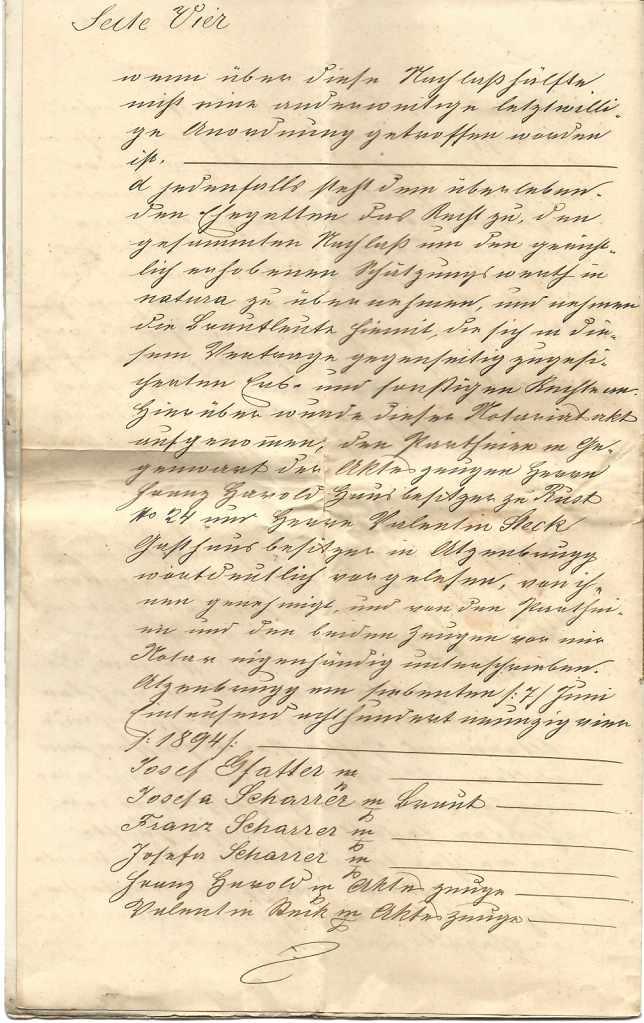 Seite Vier
wenn über diese Nachlaßhälfte
nicht eine anderweitige letztwilli-
ge Anordnung getroffen worden
ist.
d jedenfalls steht dem überleben-
den Ehegatten das Recht zu, den
gesammten Nachlaß um den gericht-
lich erhobenen Schätzungswerth in
natura zu übernehmen, und nehmen
die Brautleute hiemit, die sich in die-
sem Vertrage gegenseitig zugesi-
cherten Erb- und sonstigen Rechte an.
Hierüber wurde dieser Notariatsakt
aufgenommen, den Partheien in Ge-
genwart der Akteszeugen Herrn
Franz Harold Hausbesitzer zu Rust
No 24 und Herrn Valentin Steck
Gasthausbesitzer in Atzenbrugg
wortdeutlich vorgelesen, von ih-
nen genehmigt, und von den Parthei-
en und den beiden Zeugen vor mir
Notar eigenhändig unterschrieben.
Atzenbrugg am siebenten /:7/ Juni
Eintausend achthundert neunzig vier
/:1894/:
Josef Gfatter m
Josefa Scharrer m/p Braut
Franz Scharrer m/p
Josefa Scharrer m/p
Franz Harold m/p Akteszeuge
Valentin Steck m/p Akteszeuge